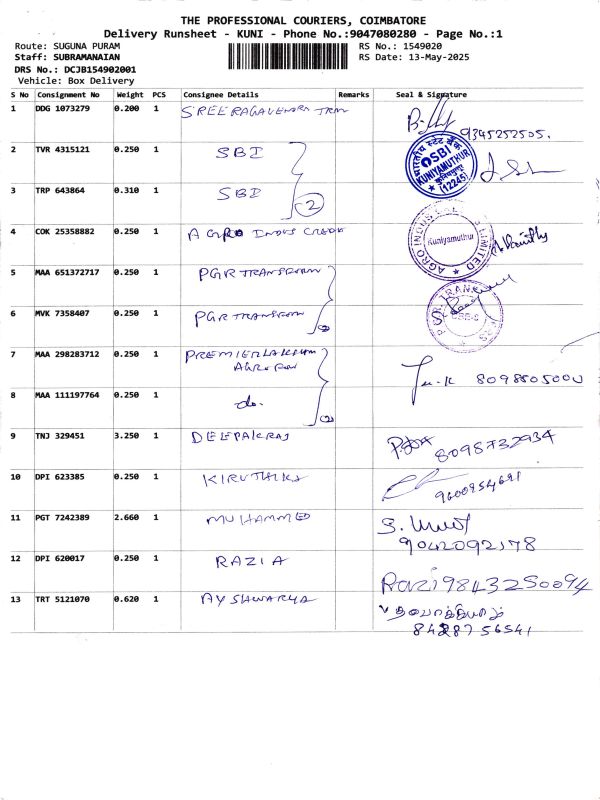 THE PROFESSIONAL COURIERS, COIMBATORE
Delivery Runsheet - KUNI - Phone No.:9047080280 - Page No.:1
Route: SUGUNA PURAM RS No.: 1549020
Staff: SUBRAMANAIAN RS Date: 13-May-2025
DRS No.: DCJB154902001
Vehicle: Box Delivery
S No Consignment No Weight PCS Consignee Details Remarks Seal & Signature
1 DDG 1073279 0.200 1 SREERAGAVENDRA TRAN
9345252505.
2 TVR 4315121 0.250 1 SBI
भारतीय स्टेट बैंक SBI KUNIYAMUTHUR (12245)
3 TRP 643864 0.310 1 SBI
2
4 COK 25358882 0.250 1 AGRO INDUS CREDIT
AGRO INDUS LIMITED Kuniyamuthur
5 MAA 651372717 0.250 1 PGR TRANSFORM
6 MVK 7358407 0.250 1 PGR TRANSFORM
2
7 MAA 298283712 0.250 1 PREMIER
8098505000
8 MAA 111197764 0.250 1 do.
2
9 TNJ 329451 3.250 1 DEEPAKRAJ
8098732934
10 DPI 623385 0.250 1 KIRUTHIKA
9600954691
11 PGT 7242389 2.660 1 MUHAMMED
9042092178
12 DPI 620017 0.250 1 RAZIA
Razi 9843250094
13 TRT 5121070 0.620 1 AYSHWARYA
8428756541